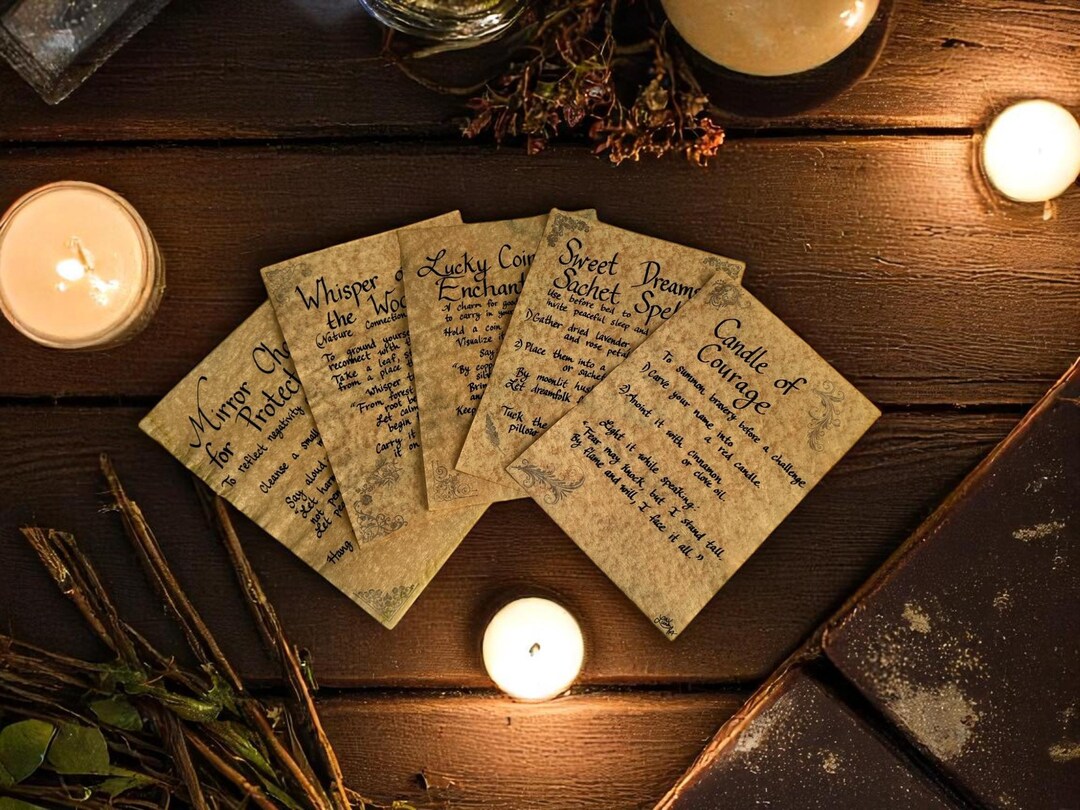 Mirror
for Protect
To reflect negativity
Cleanse a
Say aloud
"Let
not
Let
Hang
Whisper
the
Nature Connection
To ground
reconnect with
Take a leaf,
from a place
Whisper
"From
root
Let calm
begin
Carry it
Lucky Coin
Enchant
A charm for
to carry in
Hold a coin
Visualize
Say
"By
sil
Bring
and
Keep
Sweet Dreams
Sachet Spell
Use before bed to
invite peaceful sleep and
1) Gather dried lavender
and rose
2) Place them into a
or sachet
By moonlit
Let dreamfolk
Tuck the
pillow
Candle of
Courage
To summon bravery before a challenge
1) Carve your name into
a red candle.
2) Anoint it with cinnamon
or clove oil.
Light it while speaking:
"Fear may knock, but I stand tall,
By flame and will, I face it all."